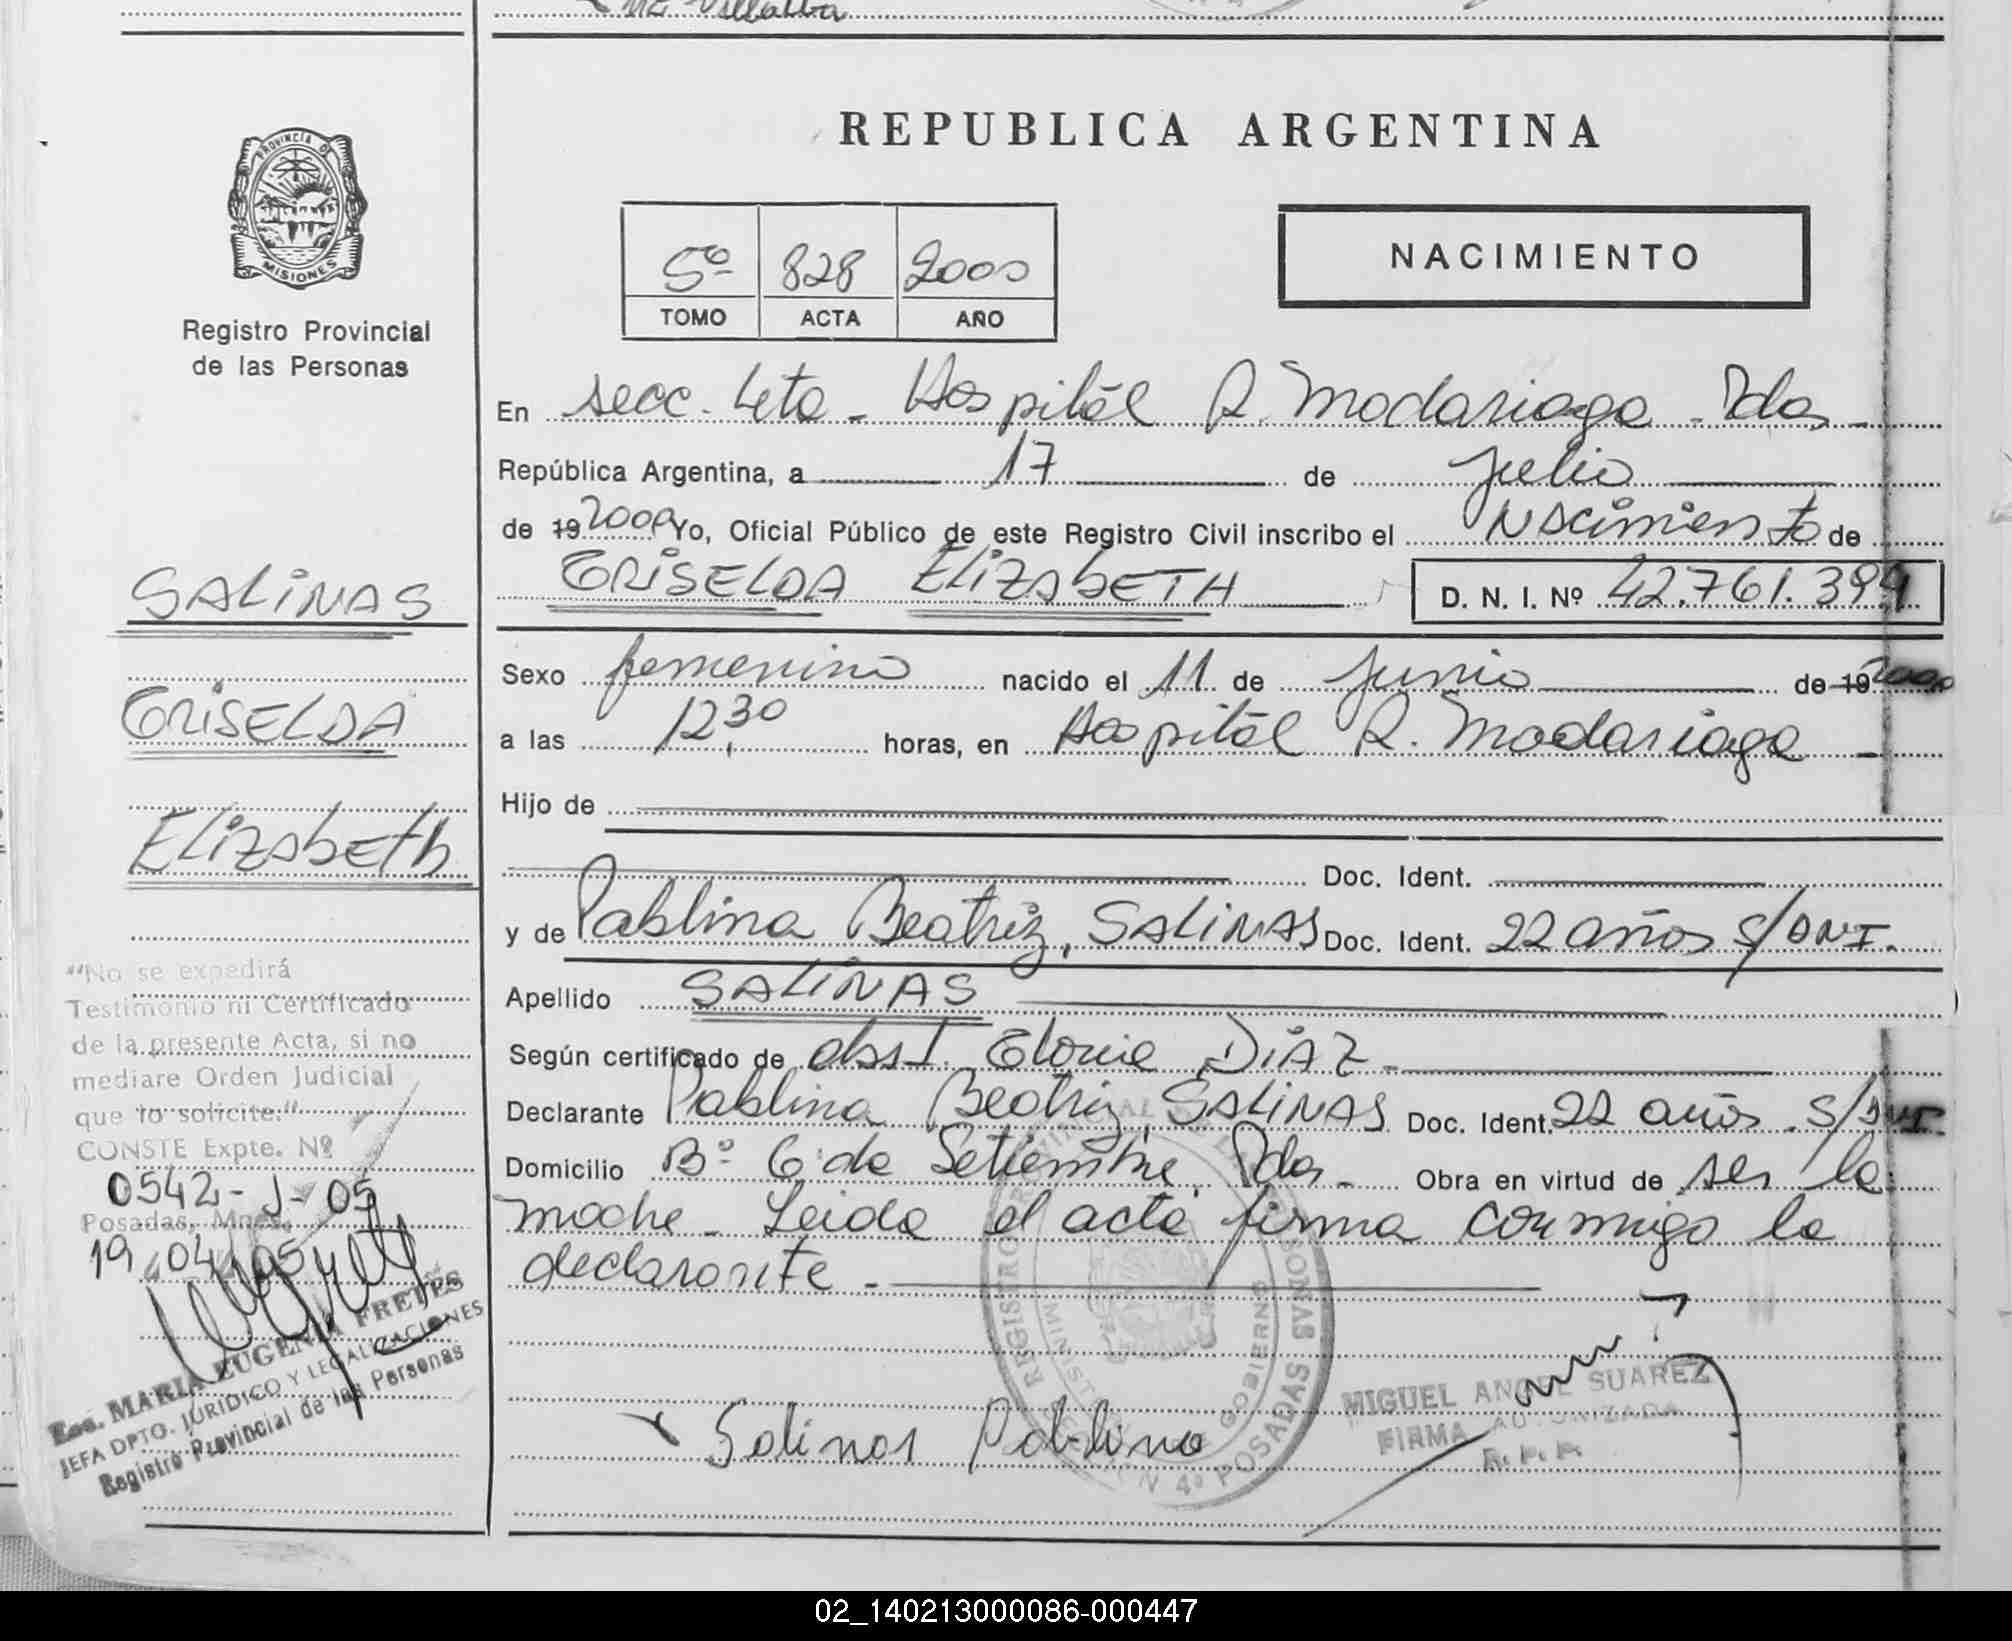 Villalba
PROVINCIA D
MISIONES
Registro Provincial
de las Personas
REPUBLICA ARGENTINA
5º 828 2000
TOMO ACTA AÑO
NACIMIENTO
En secc. 4ta - Hospital R. Madariaga - Pdas -
República Argentina, a 17 de julio
de 19 2000 Yo, Oficial Público de este Registro Civil inscribo el Nacimiento de
GRISELDA ELIZABETH D. N. I. Nº 42.761.399
SALINAS
GRISELDA
ELIZAbETh
Sexo femenino nacido el 11 de Junio de 19 2000
a las 12,30 horas, en Hospital R. Madariaga -
Hijo de
Doc. Ident.
y de Pablina Beatriz, SALINAS Doc. Ident. 22 años S/DNI.
Apellido SALINAS
Según certificado de obst. Elorie DIAZ -
Declarante Pablina Beatriz, SALINAS Doc. Ident. 22 años. S/DNI.
Domicilio Bº 6 de Setiembre, Pdas - Obra en virtud de ser la
madre - Leida el acta firma conmigo la
declarante -
"No se expedirá
Testimonio ni Certificado
de la presente Acta, si no
mediare Orden Judicial
que lo solicite."
CONSTE Expte. Nº
0542 - J - 05
Posadas, Mnes,
19 04 05
Esc. MARIA EUGENIA FRETES
JEFA DPTO. JURIDICO Y LEGALIZACIONES
Registro Provincial de las Personas
Salinas Pablina
REGISTRO PROVINCIAL DE LAS PERSONAS
MINISTERIO DE GOBIERNO
SECCION Nº 4º POSADAS
MIGUEL ANGEL SUAREZ
FIRMA AUTORIZADA
R. P. P.
02_140213000086-000447